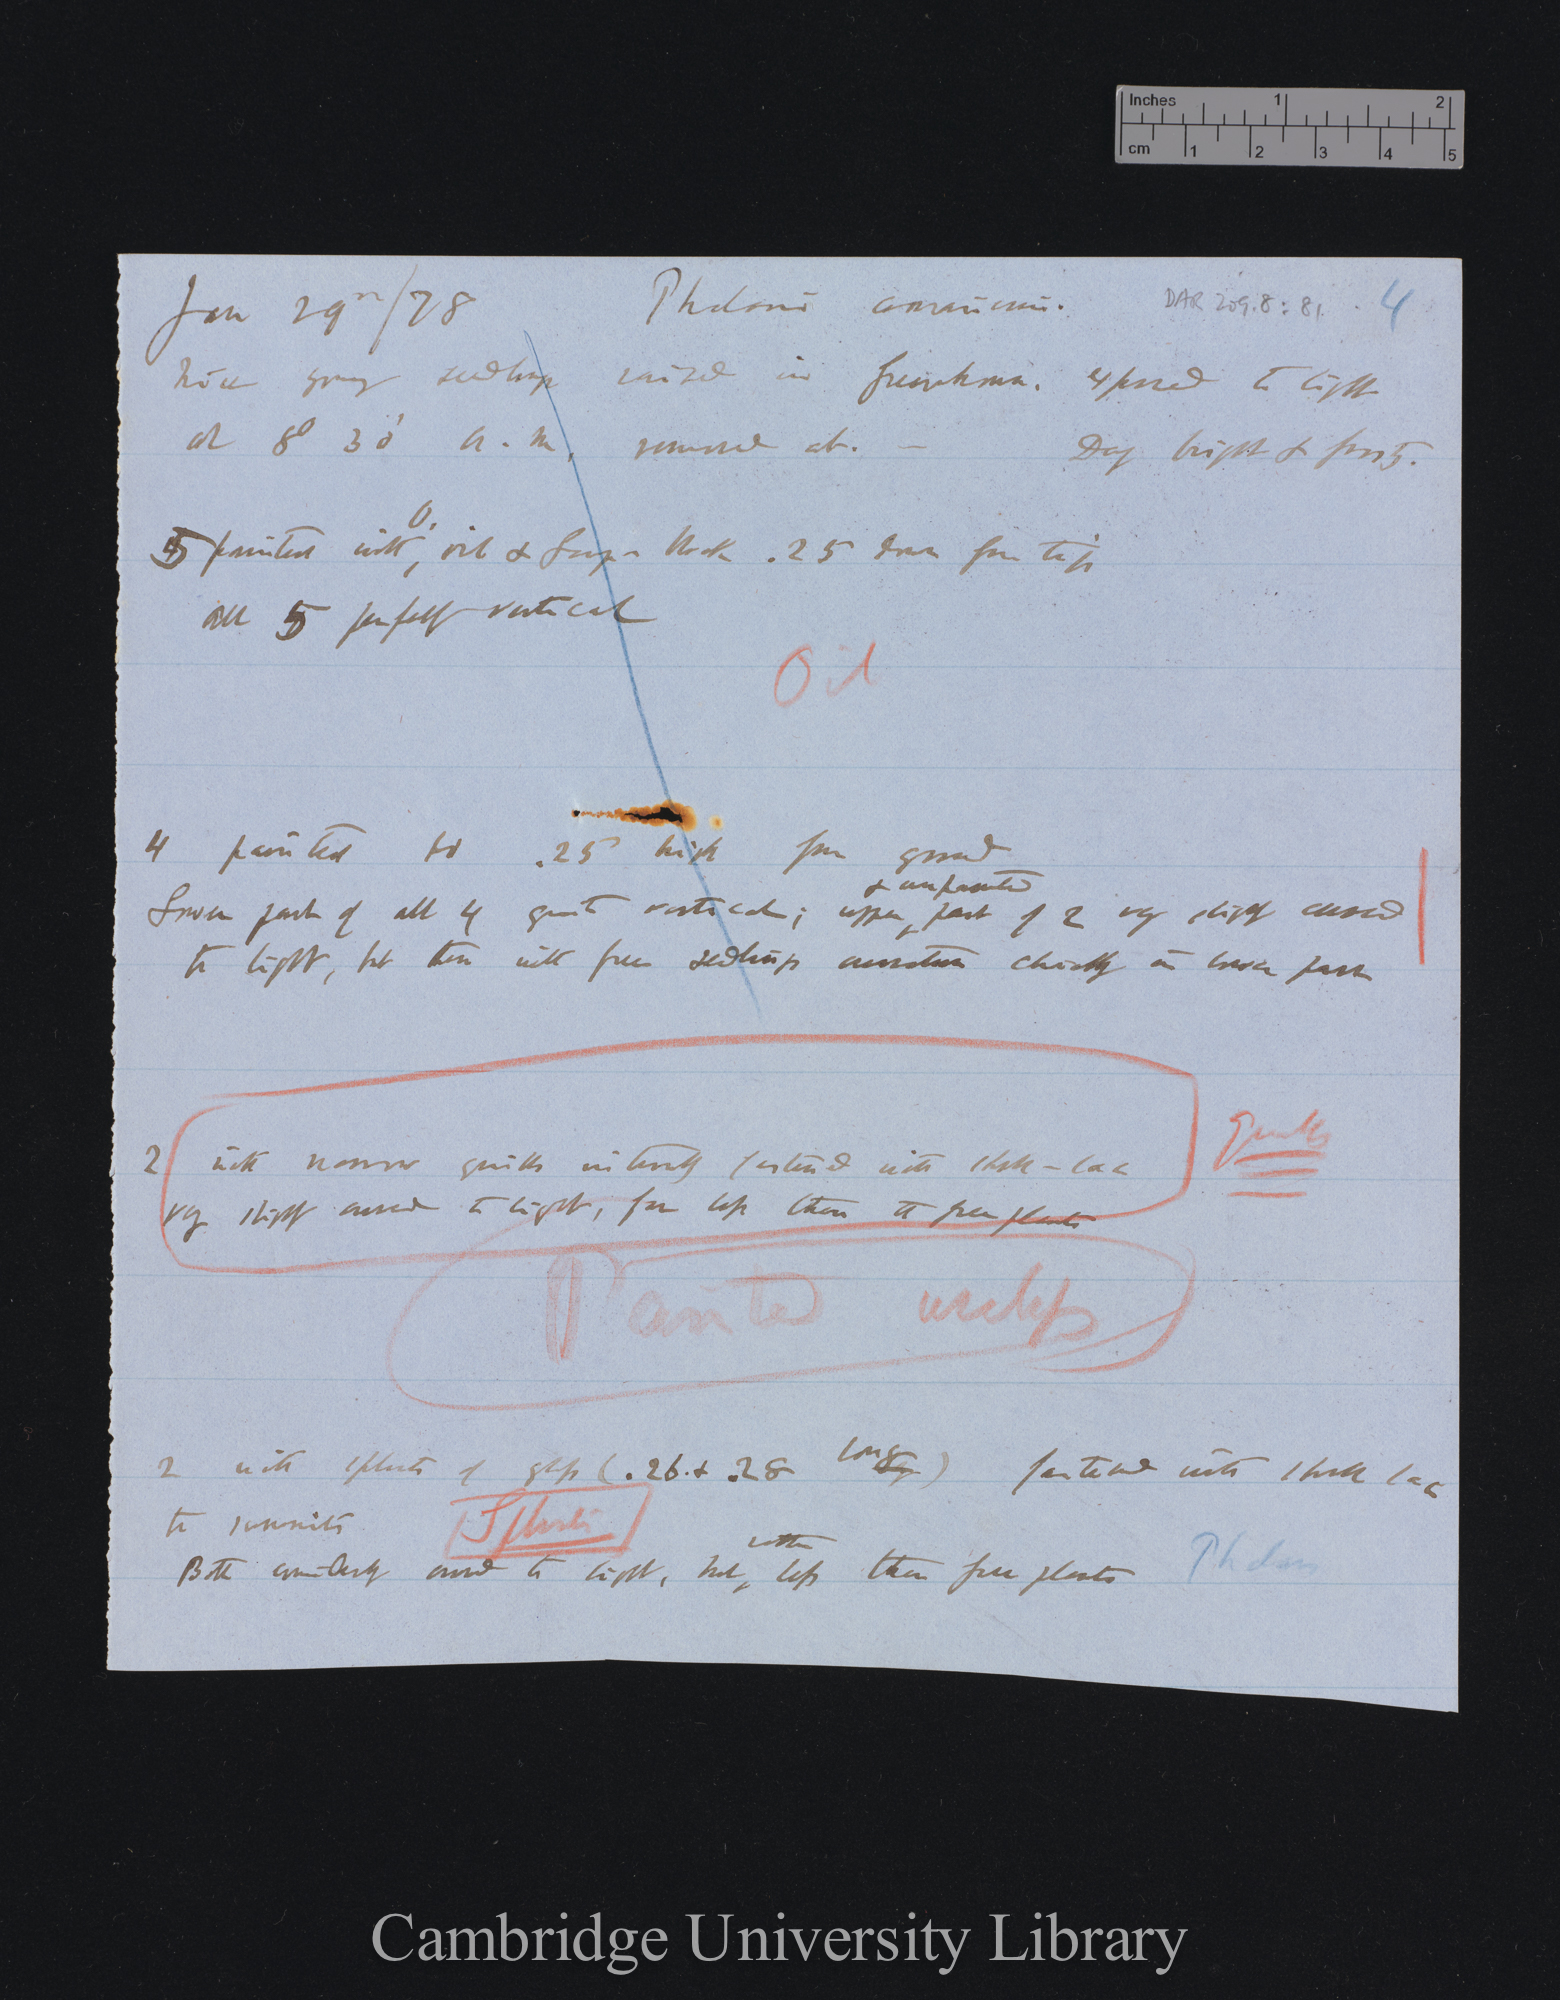 Inches 1 2
cm 1 2 3 4 5
Jan 29th/78 Phalaris canariensis. DAR 209.8: 81. 4
Nice young seedlings raised in Greenhouse. Exposed to light
at 8° 30' a.m. removed at. — Day bright & frosty.
5 painted with oil & Lamp-black .25 down from tip
all 5 perfectly vertical
Oil
4 painted to .25 high from ground
& unpainted
Lower part of all 4 quite vertical; upper part of 2 very slightly curved
to light, but then with free seedlings curvature chiefly in lower part
2 with narrow quills internally fastened with shell-lac
very slightly curved to light, far less than the free plants
Quills
Painted useless
2 with splints of glass (.26 & .28 long) fastened with shell lac
to summits
Splints
rather
Both considerably curved to light, but less than free plants
Phalaris
Cambridge University Library